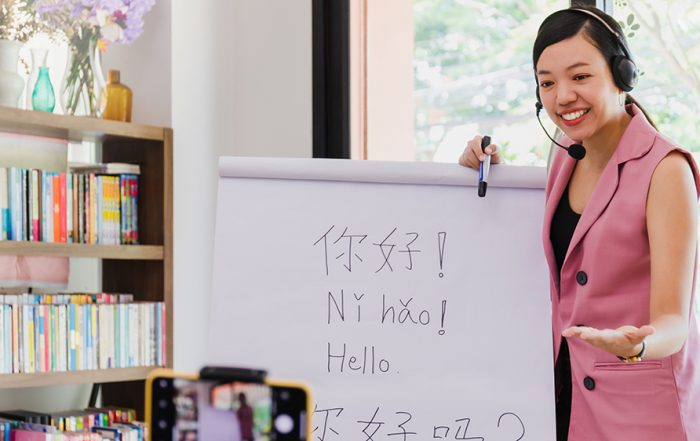 你好！
Nǐ hǎo!
Hello.
你好吗？